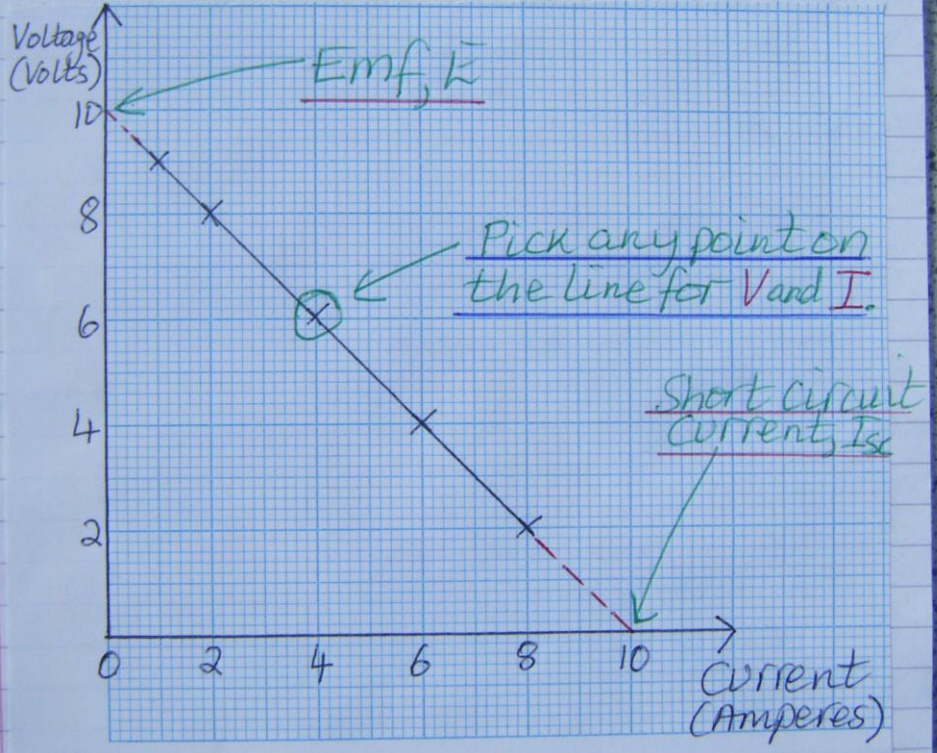 Voltage
(Volts)
Emf, E
10
8
6
4
2
Pick any point on
the line for V and I.
Short Circuit
Current, Isc
0 2 4 6 8 10
Current
(Amperes)